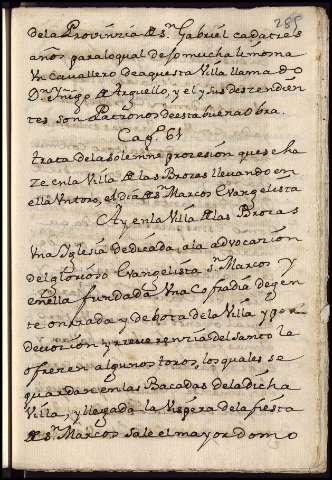 285
dela Provinzia de sn. Gabriel cada tres
años, para lo qual dejo mucha limosna
Vn Cavallero deaquesta Villa llamado
Dn. Yñigo de Arguello, y el y sus deszendien
tes son Patronos deesta buena obra.
Cap. 61
trata dela solemne prozesion que se ha
ze en la Villa de las Brozas llevando en
ella Vn toro, el dia de sn. Marcos Evangelista
Ay en la Villa de las Brozas
Vna Yglesia dedicada, a la advocazion
del glorioso Evangelista sn. Marcos y
en ella fundada Vna Cofradia de gen
te onrrada y debota dela Villa y por
devozion y reverenzia del santo le
ofrezen algunos toros, los quales se
guardan en las Bacadas dela dicha
Villa, y llegada la Vispera dela fiesta
de sn. Marcos sale el mayordomo